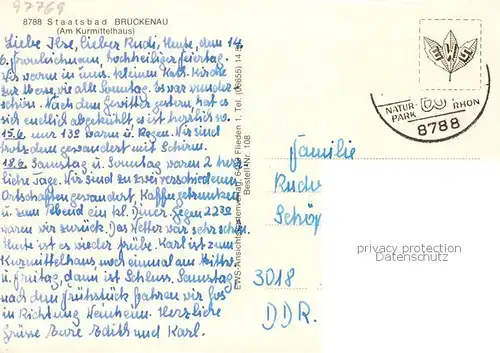 97769
8788 Staatsbad BRÜCKENAU
(Am Kurmittelhaus)
Liebe Ilse, lieber Rudi, Heute, dem 14.
6. Fronleichnam, hochheiliger Feiertag.
Wir waren in uns. kleinen Kath. Kirche
zur Messe, wie alle Sonntag. Es war wunder-
schön. Nach dem Gewitter gestern, hat es
sich endlich abgekühlt es ist herzlich so.
15.6. nur 13° warm u. Regen. Wir sind
trotzdem gewandert mit Schirm.
18.6. Samstag u. Sonntag waren 2 herr-
liche Tage. Wir sind zu zwei verschiedenen
Ortschaften gewandert, Kaffeegetrunken
u. zum Abend ein kl. Diner. Gegen 22³⁰
waren wir zurück. Das Wetter war sehr schön.
Heute ist es wieder trübe. Karl ist zum
Kurmittelhaus, noch einmal am Mittw.
u. Freitag, dann ist Schluss. Samstag
nach dem Frühstück fahren wir los
in Richtung Weinheim. Herzliche
Grüsse Eure Edith und Karl.
EWS-Ansichtskartenverlag, 6404 Flieden 1, Tel. (06655) 14
Bestell-Nr. 108
NATUR-
PARK
RHÖN
8788
Familie
Rud
Schö
3018
DDR.
privacy protection
watermark